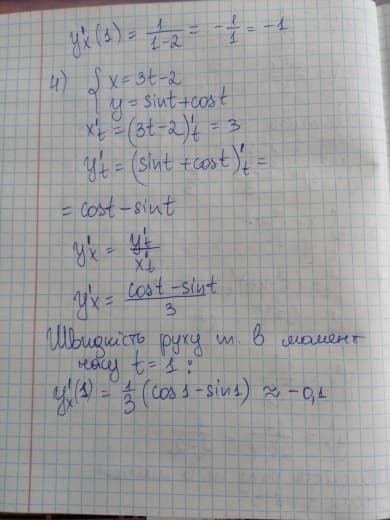 y'x(1) = 1/(1-2) = -1/1 = -1
4) { x = 3t-2
y = sint+cost
x't = (3t-2)'t = 3
y't = (sint + cost)'t =
= cost - sint
y'x = y't/x't
y'x = (cost - sint)/3
Швидкість руху т. в момент
часу t = 1 :
y'x(1) = 1/3 (cos1 - sin1) ≈ -0,1